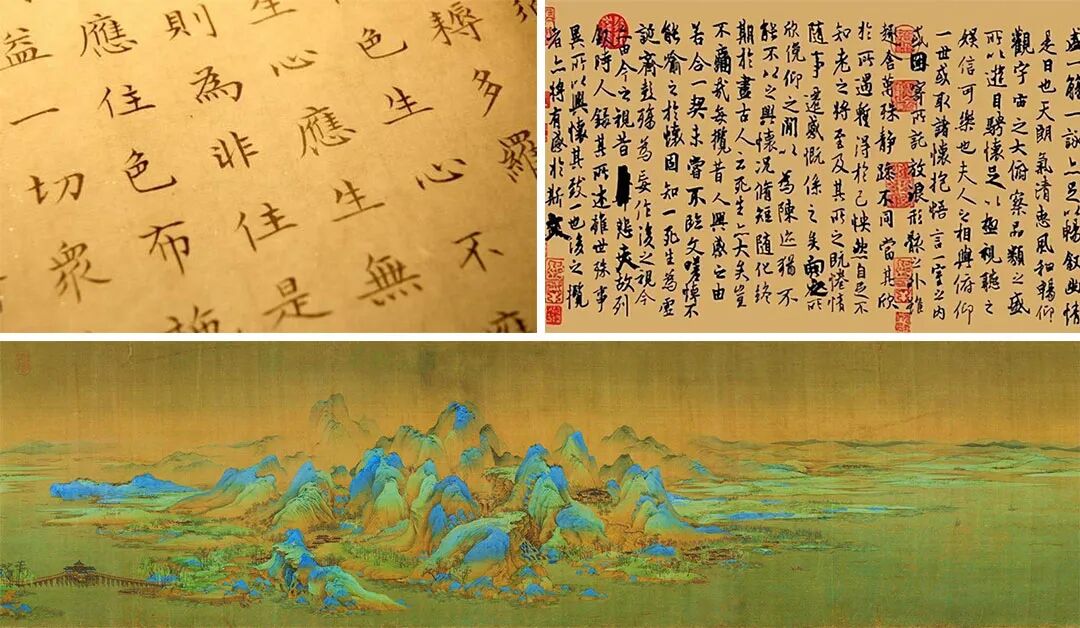 耨多羅
色生心不應
生心應生無
則為非住是
應住色布施
益一切眾
盛一觴一詠亦足以暢敘幽情
是日也天朗氣清惠風和暢仰
觀宇宙之大俯察品類之盛
所以遊目騁懷足以極視聽之
娛信可樂也夫人之相與俯仰
一世或取諸懷抱悟言一室之內
或因寄所託放浪形骸之外雖
趣舍萬殊靜躁不同當其欣
於所遇暫得於己怏然自足不
知老之將至及其所之既惓情
隨事遷感慨係之矣向之所
欣俛仰之閒以為陳迹猶不
能不以之興懷況脩短隨化終
期於盡古人云死生亦大矣豈
不痛哉每攬昔人興感之由
若合一契未嘗不臨文嗟悼不
能喻之於懷固知一死生為虛
誕齊彭殤為妄作後之視今
亦由今之視昔悲夫故列
敘時人錄其所述雖世殊事
異所以興懷其致一也後之攬
者亦將有感於斯文